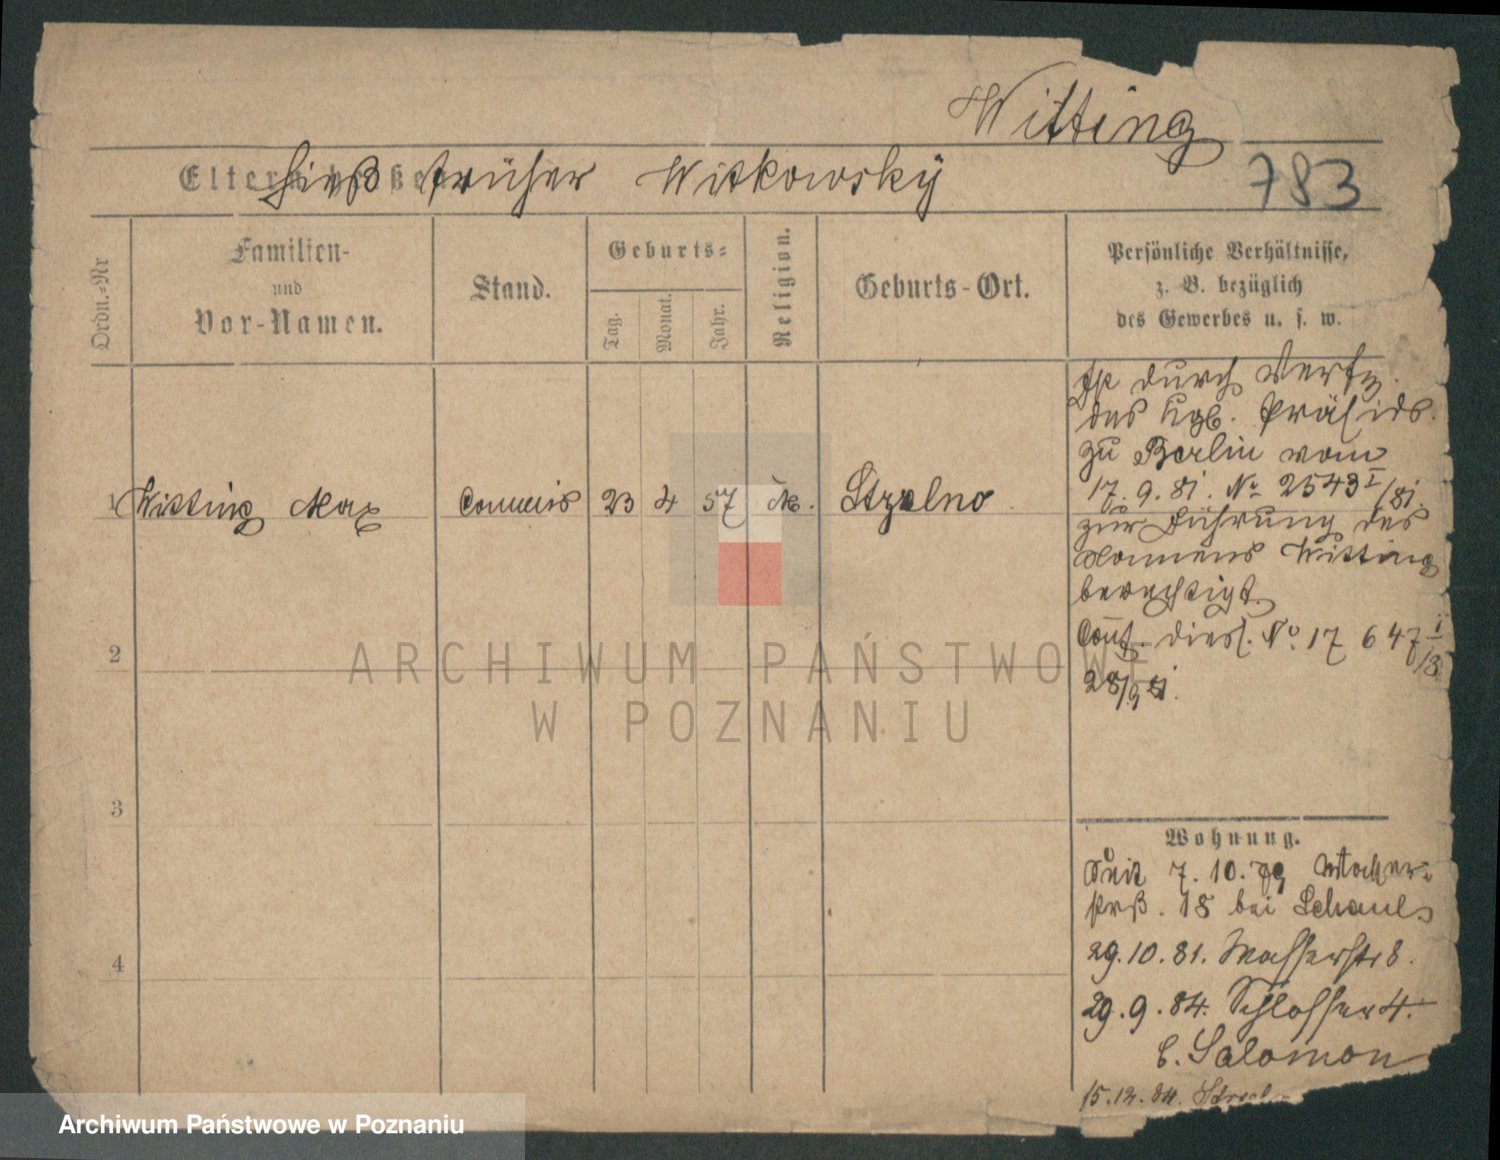 Witting
hieß früher Witkowsky
783
Ordn.-Nr
Familien-
und
Vor-Namen.
Stand.
Geburts-
Tag.
Monat.
Jahr.
Religion.
Geburts-Ort.
Persönliche Verhältnisse,
z. B. bezüglich
des Gewerbes u. s. w.
Ist durch Verfg.
des Kgl. Präsids.
zu Berlin vom
17. 9. 81. No 2543 I/81.
zur Führung des
Namens Witting
berechtigt.
1 Witting Max Commis 23 4 57 M. Strzelno
diess. No. 17 647 I
28/9 81.
2
3
4
Wohnung.
Seit 7. 10. 79
18 bei
29. 10. 81. Wasserstr 8.
29. 9. 84. Schlosser 4.
b. Salomon
15. 12. 84.
ARCHIWUM PAŃSTWOWE
W POZNANIU
Archiwum Państwowe w Poznaniu